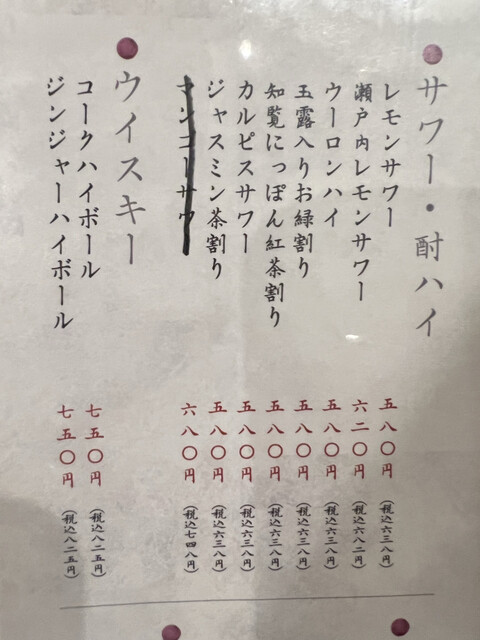 サワー・酎ハイ
レモンサワー 五八〇円 (税込六三八円)
瀬戸内レモンサワー 六二〇円 (税込六八二円)
ウーロンハイ 五八〇円 (税込六三八円)
玉露入りお緑割り 五八〇円 (税込六三八円)
知覧にっぽん紅茶割り 五八〇円 (税込六三八円)
カルピスサワー 五八〇円 (税込六三八円)
ジャスミン茶割り 五八〇円 (税込六三八円)
マンゴーサワー 六八〇円 (税込七四八円)
ウイスキー
コークハイボール 七五〇円 (税込八二五円)
ジンジャーハイボール 七五〇円 (税込八二五円)